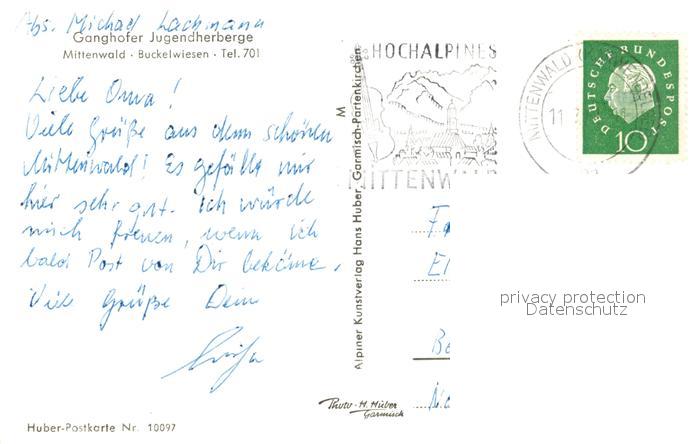 Abs. Michael Lachmann
Ganghofer Jugendherberge
Mittenwald · Buckelwiesen · Tel. 701
Liebe Oma!
Viele Grüße aus dem schönen
Mittenwald! Es gefällt mir
hier sehr gut. Ich würde
mich freuen, wenn ich
bald Post von Dir bekäme.
Viele Grüße Dein
Huber-Postkarte Nr. 10097
M
Alpiner Kunstverlag Hans Huber, Garmisch-Partenkirchen
Photo-H. Huber
Garmisch
HOCHALPINES
MITTENWALD
MITTENWALD
11
DEUTSCHE BUNDESPOST
10
privacy protection
Datenschutz